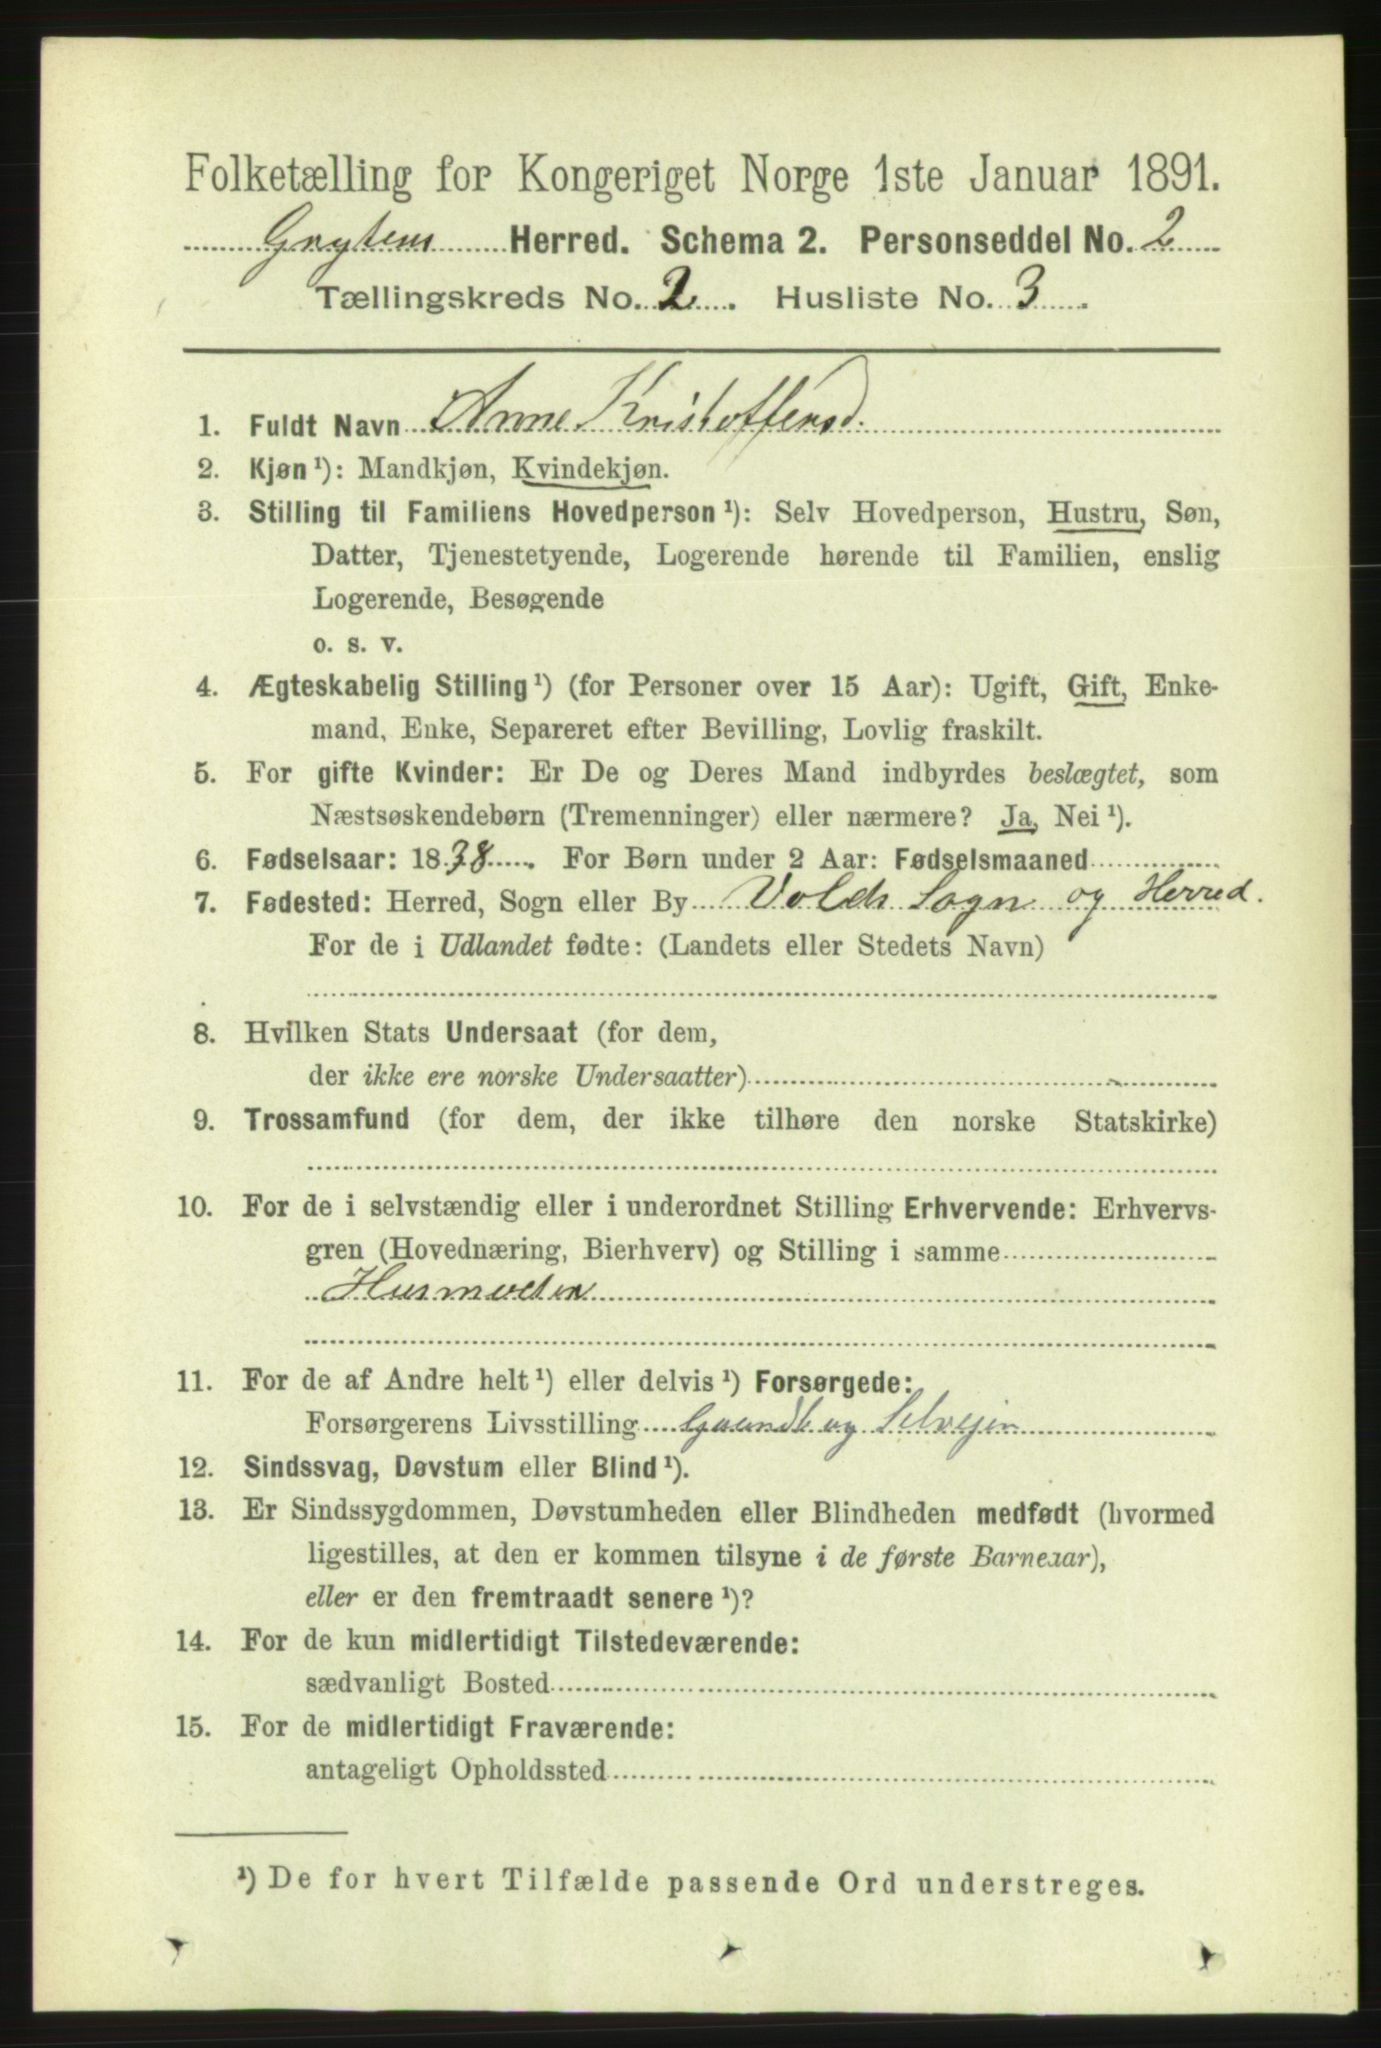 Folketælling for Kongeriget Norge 1ste Januar 1891.
Grytens Herred. Schema 2. Personseddel No. 2
Tællingskreds No. 2. Husliste No. 3.
1. Fuldt Navn Anne Kristoffersd.
2. Kjøn ¹): Mandkjøn, Kvindekjøn.
3. Stilling til Familiens Hovedperson ¹): Selv Hovedperson, Hustru, Søn,
Datter, Tjenestetyende, Logerende hørende til Familien, enslig
Logerende, Besøgende
o. s. v.
4. Ægteskabelig Stilling ¹) (for Personer over 15 Aar): Ugift, Gift, Enke-
mand, Enke, Separeret efter Bevilling, Lovlig fraskilt.
5. For gifte Kvinder: Er De og Deres Mand indbyrdes beslægtet, som
Næstsøskendebørn (Tremenninger) eller nærmere? Ja, Nei ¹).
6. Fødselsaar: 1838. For Børn under 2 Aar: Fødselsmaaned
7. Fødested: Herred, Sogn eller By Volds Sogn og Herred.
For de i Udlandet fødte: (Landets eller Stedets Navn)
8. Hvilken Stats Undersaat (for dem,
der ikke ere norske Undersaatter)
9. Trossamfund (for dem, der ikke tilhøre den norske Statskirke)
10. For de i selvstændig eller i underordnet Stilling Erhvervende: Erhvervs-
gren (Hovednæring, Bierhverv) og Stilling i samme
Husmoder
11. For de af Andre helt ¹) eller delvis ¹) Forsørgede:
Forsørgerens Livsstilling Gaardb og Selvejer
12. Sindssvag, Døvstum eller Blind ¹).
13. Er Sindssygdommen, Døvstumheden eller Blindheden medfødt (hvormed
ligestilles, at den er kommen tilsyne i de første Barneaar),
eller er den fremtraadt senere ¹)?
14. For de kun midlertidigt Tilstedeværende:
sædvanligt Bosted
15. For de midlertidigt Fraværende:
antageligt Opholdssted
¹) De for hvert Tilfælde passende Ord understreges.